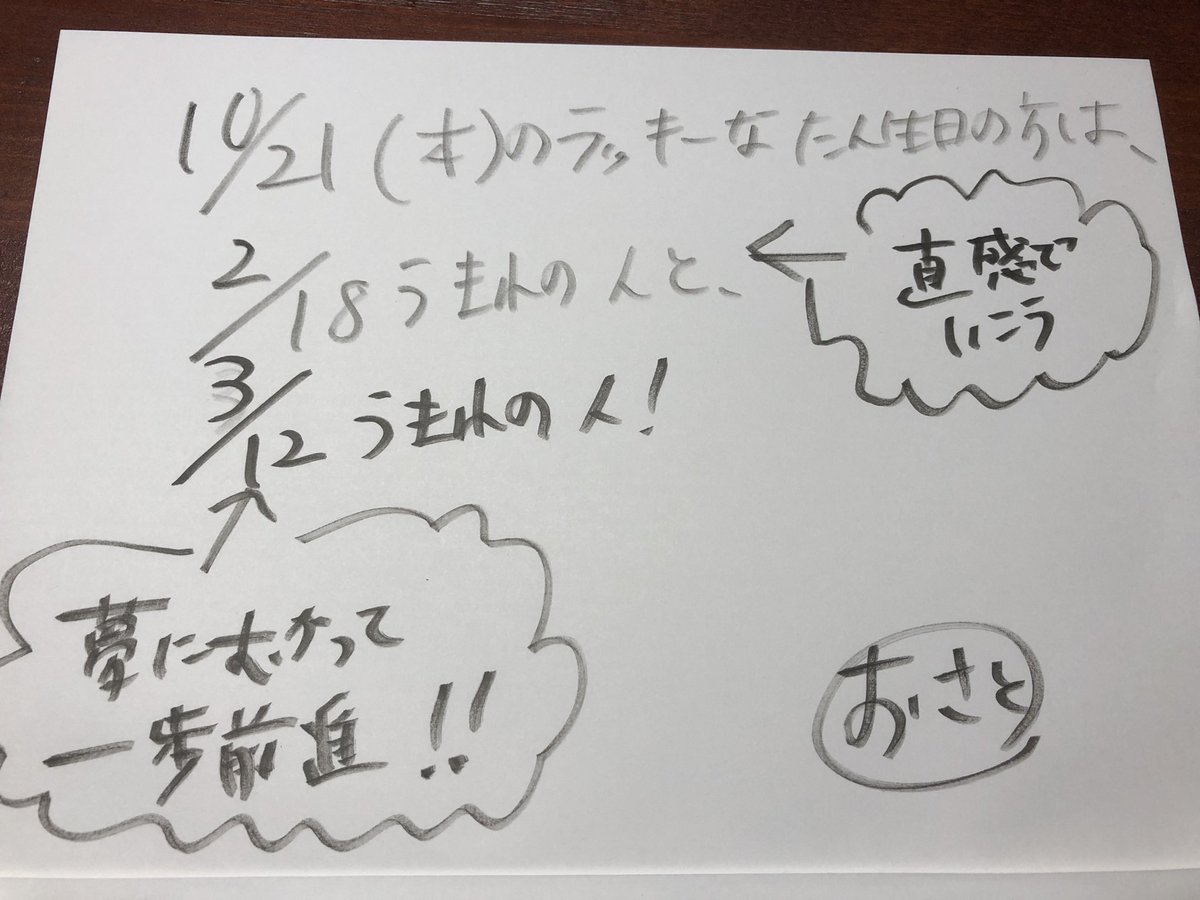 10/21(木)のラッキーなたん生日の方は、
2/18うまれの人と、
←
直感で
いこう
3/12うまれの人!
↑
夢にむかって
一歩前進!!
おさと